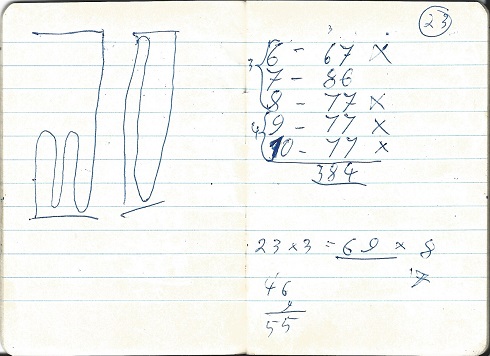 23
3 { 6 - 67 X
7 - 86
8 - 77 X
4 { 9 - 77 X
10 - 77 X
384
23 x 3 = 69 x 8
7
46
9
55